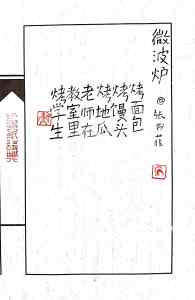 微波炉
@张
烤面包
烤馒头
烤地瓜
老师在
教室里
烤学生